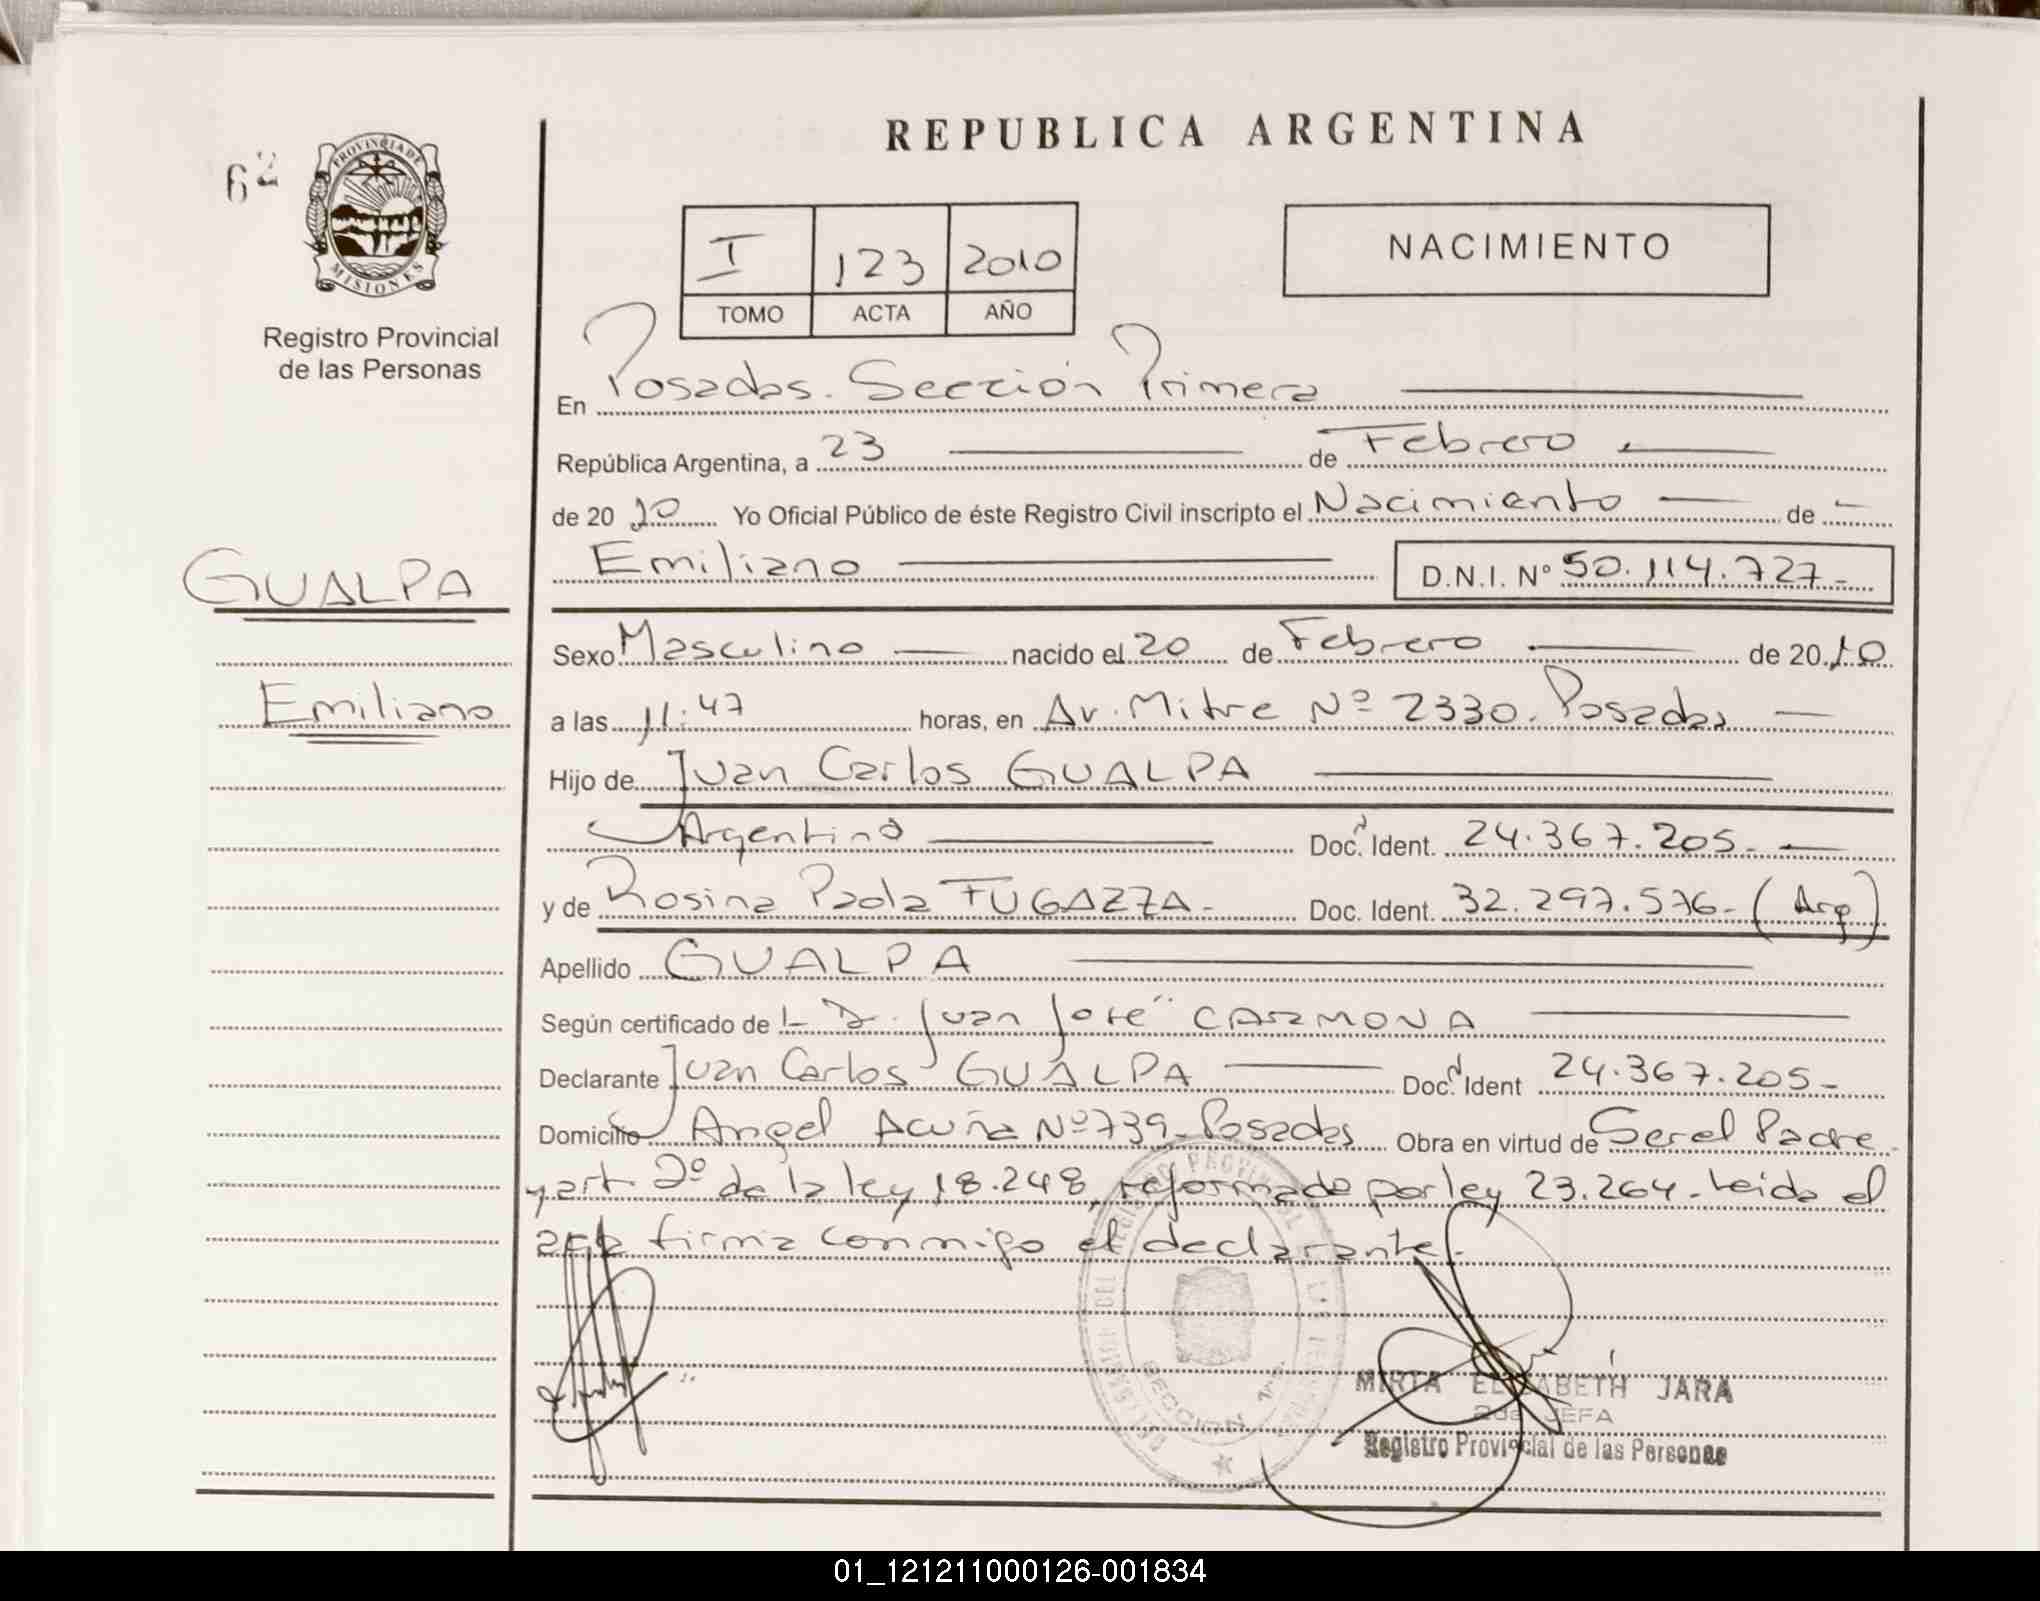 REPUBLICA ARGENTINA
62
PROVINCIA DE
MISIONES
Registro Provincial
de las Personas
I 123 2010
TOMO ACTA AÑO
NACIMIENTO
En Posadas. Sección Primera
República Argentina, a 23 de Febrero
de 20 10 Yo Oficial Público de éste Registro Civil inscripto el Nacimiento de
Emiliano D.N.I. Nº 50.114.727-
GUALPA
Emiliano
Sexo Masculino nacido el 20 de Febrero de 20 10
a las 11:47 horas, en Av. Mitre Nº 2330. Posadas
Hijo de Juan Carlos GUALPA
Argentino Doc. Ident. 24.367.205-
y de Rosina Paola FUGAZZA- Doc. Ident. 32.297.576- (Arg)
Apellido GUALPA
Según certificado de Juan José CARMONA
Declarante Juan Carlos GUALPA Doc. Ident 24.367.205-
Domicilio Angel Acuña Nº 739- Posadas Obra en virtud de Ser el Padre
y art 2º de la ley 18.248, reformado por ley 23.264- Leida el
acta firma conmigo el declarante-
SECCION 1ra
MIRTA ELISABETH JARA
2da JEFA
Registro Provincial de las Personas
01_121211000126-001834